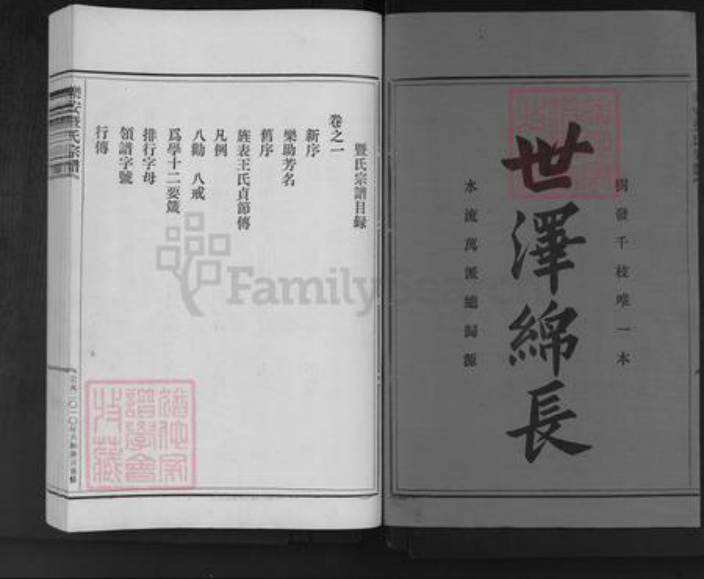 樹發千枝唯一本
世澤綿長
水流萬派總歸源
暨氏宗譜目録
卷之一
新序
樂助芳名
舊序
旌表王氏貞節傳
凡例
八勸 八戒
爲學十二要箴
排行字母
領譜字號
行傳
樂安暨氏宗譜
FamilySearch